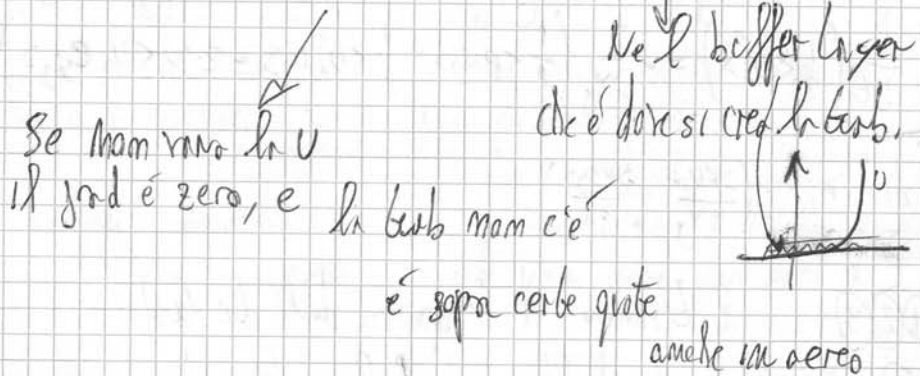 Nel buffer layer
che é dove si crea la turb.
Se non varia la U
Il grad é zero, e la turb non c'é
é sopra certe quote
anche in aereo
U